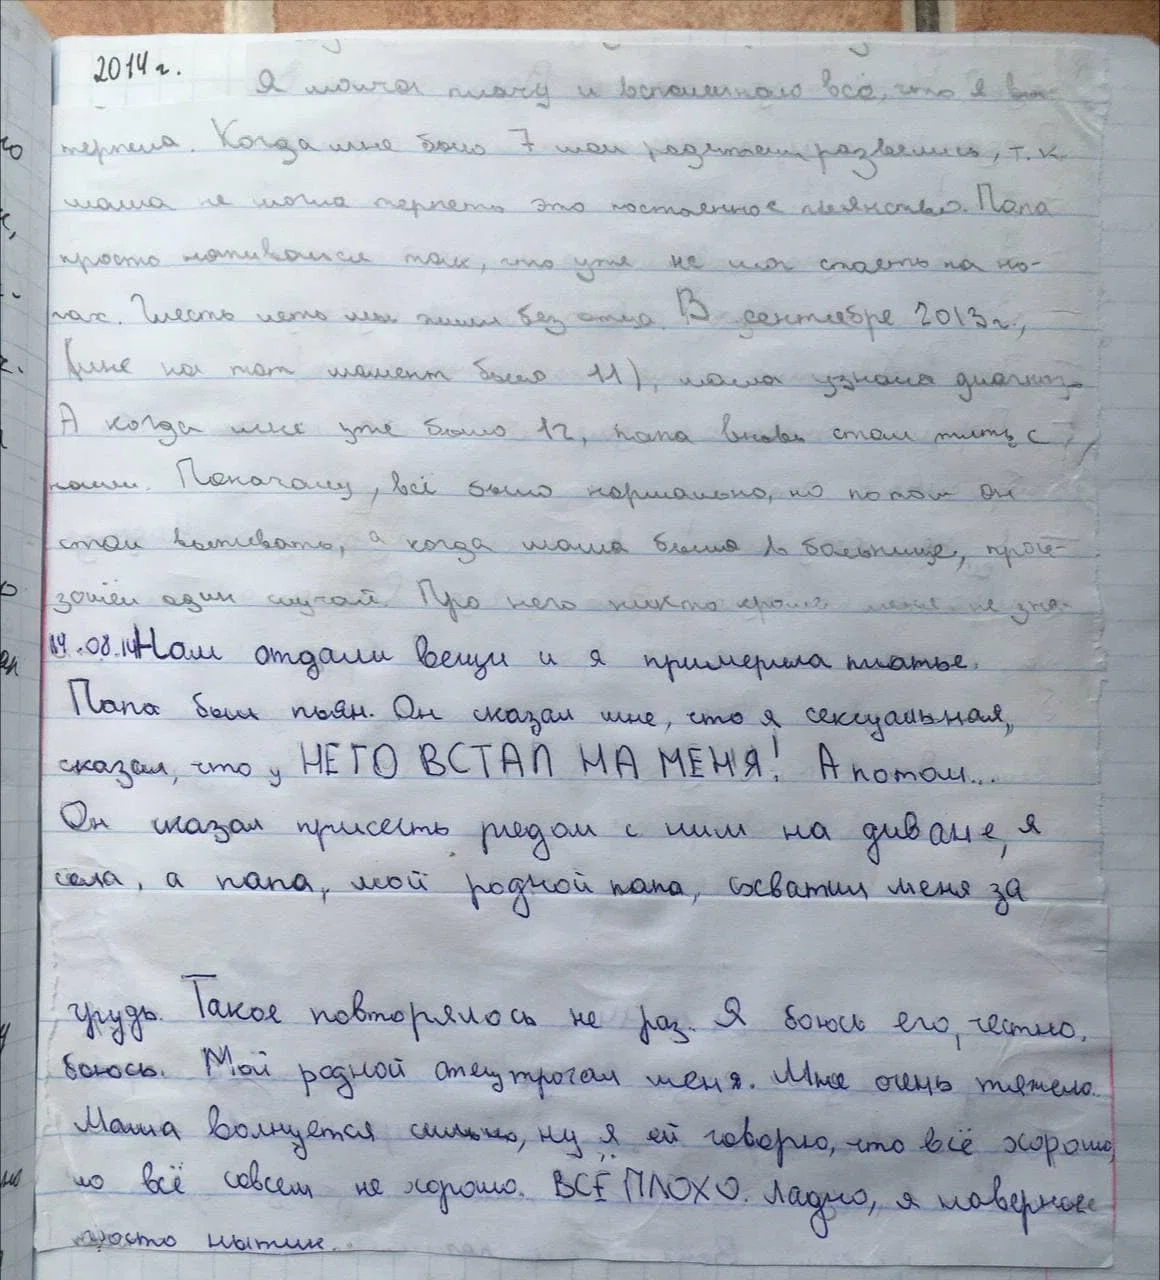 2014 г.
Я молча плачу и вспоминаю всё, что я вы-
терпела. Когда мне было 7 мои родители развелись, т.к.
мама не могла терпеть это постоянное пьянство. Папа
просто напивался так, что уже не мог стоять на но-
гах. Шесть лет мы жили без отца. В сентябре 2013 г.,
(мне на тот момент было 11), мама узнала диагноз.
А когда мне уже было 12, папа вновь стал жить с
нами. Поначалу, всё было нормально, но потом он
стал выпивать, а когда мама была в больнице, прои-
зошёл один случай. Про него никто кроме меня не зна-
14.08.14 Нам отдали вещи и я примерила платье.
Папа был пьян. Он сказал мне, что я сексуальная,
сказал, что у НЕГО ВСТАЛ НА МЕНЯ! А потом...
Он сказал присесть рядом с ним на диване, я
села, а папа, мой родной папа, схватил меня за
грудь. Такое повторялось не раз. Я боюсь его, честно,
боюсь. Мой родной отец трогал меня. Мне очень тяжело..
Мама волнуется сильно, ну я ей говорю, что всё хорошо,
но всё совсем не хорошо. ВСЁ ПЛОХО. Ладно, я наверное
просто нытик..